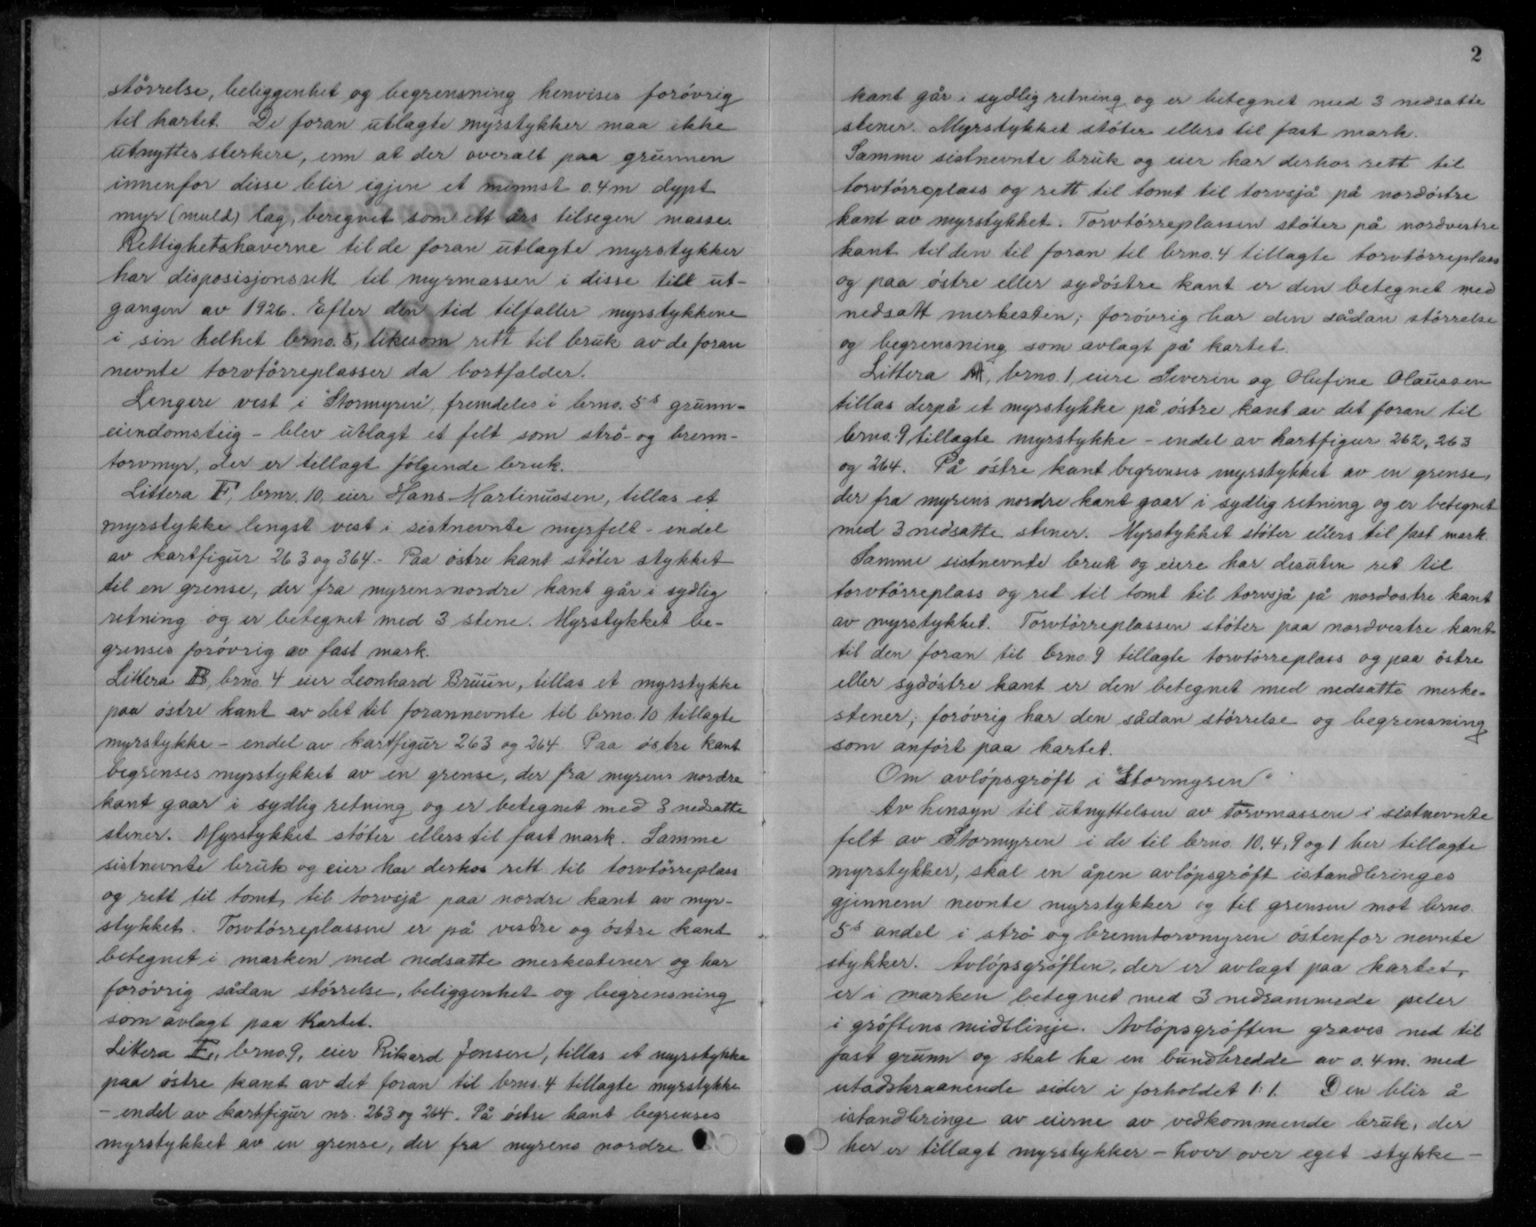 störrelse, beliggenhet og begrensning henvises foróvrig
til kartet. De foran utlagte myrstykker maa ikke
utnyttes sterkere, enn at der overalt paa grunnen
innenfor disse blir igjen et minnst 0.4 m dypt
myr (muld) lag, beregnet som ett års tilsegen masse.
Rettighetshaverne til de foran utlagte myrstykker
har disposisjonsrett til myrmassen i disse till ut-
gangen av 1926. Efter den tid tilfaller myrstykkene
i sin helhet brno. 5, likesom rett til bruk av de foran
nevnte torvtórreplasser da bortfalder.
Lengere vest i "Stormyren", fremdeles i brno. 5s grunn-
eiendomsteig - blev utlagt et felt som strö- og brenn-
torvmyr, der er tillagt fölgende bruk.
Littera F, brnr. 10, eier Hans Martinussen, tillas et
myrstykke lengst vest i sistnevnte myrfelt - endel
av kartfigur 263 og 364. - Paa östre kant stöter stykket
til en grense, der fra myrens nordre kant går i sydlig
retning og er betegnet med 3 stene. Myrstykket be-
grenses foróvrig av fast mark.
Littera B, brno. 4 eier Leonhard Bruun, tillas et myrstykke
paa östre kant av det til forannevnte til brno. 10 tillagte
myrstykke - endel av kartfigur 263 og 264. Paa östre kant
begrenses myrstykket av en grense, der fra myrens nordre
kant gaar i sydlig retning og er betegnet med 3 nedsatte
stener. Myrstykket stöter ellers til fast mark. Samme
sistnevnte bruk og eier har derhos rett til torvtörreplass
og rett til tomt til torvsjå paa nordre kant av myr-
stykket. Torvtörreplassen er på vestre og östre kant
betegnet i marken med nedsatte merkestener og har
foróvrig sådan störrelse, beliggenhet og begrensning
som avlagt paa kartet.
Littera E, brno. 9, eier Rikard Jensen, tillas et myrstykke
paa östre kant av det foran til brno. 4 tillagte myrstykke
- endel av kartfigur nr. 263 og 264. På östre kant begrenses
myrstykket av en grense, der fra myrens nordre
2
kant går i sydlig retning og er betegnet med 3 nedsatte
stener. Myrstykket stöter ellers til fast mark.
Samme sistnevnte bruk og eier har derhos rett til
torvtórreplass og rett til tomt til torvsjå på nordöstre
kant av myrstykket. Torvtórreplassen stöter på nordvestre
kant til den til foran til brno. 4 tillagte torvtörreplass
og paa östre eller sydöstre kant er den betegnet med
nedsatt merkesten; foróvrig har den sådan störrelse
og begrensning som avlagt på kartet.
Littera A, brno. 1, eiere Severin og Olufine Olaussen
tillas derpå et myrstykke på östre kant av det foran til
brno. 9 tillagte myrstykke - endel av kartfigur 262, 263
og 264. På östre kant begrenses myrstykket av en grense,
der fra myrens nordre kant gaar i sydlig retning og er betegnet
med 3 nedsatte stener. Myrstykket stöter ellers til fast mark.
Samme sistnevnte bruk og eiere har desuten ret til
torvtórreplass og ret til tomt til torvsjå på nordostre kant
av myrstykket. Torvtórreplassen stöter paa nordvestre kant
til den foran til brno 9 tillagte torvtörreplass og paa östre
eller sydöstre kant er den betegnet med nedsatte merke-
stener; foróvrig har den sådan störrelse og begrensning
som anfört paa kartet.
Om avlópsgröft i "Stormyren"
Av hensyn til utnyttelsen av torvmassen i sistnevnte
felt av Stormyren i de til brno. 10, 4, 9 og 1 her tillagte
myrstykker, skal en åpen avlöpsgröft istandbringes
gjennem nevnte myrstykker og til grensen mot brno.
5s andel i strö og brenntorvmyren östenfor nevnte
stykker. Avlöpsgröften, der er avlagt paa kartet,
er i marken betegnet med 3 nedrammede peler
i gröftens midtlinje. Avlöpsgröften graves ned til
fast grunn og skal ha en bundbredde av 0.4 m. med
utadskraanende sider i forholdet 1:1. Den blir å
istandbringe av eierne av vedkommende bruk, der
her er tillagt myrstykker - hver over eget stykke -